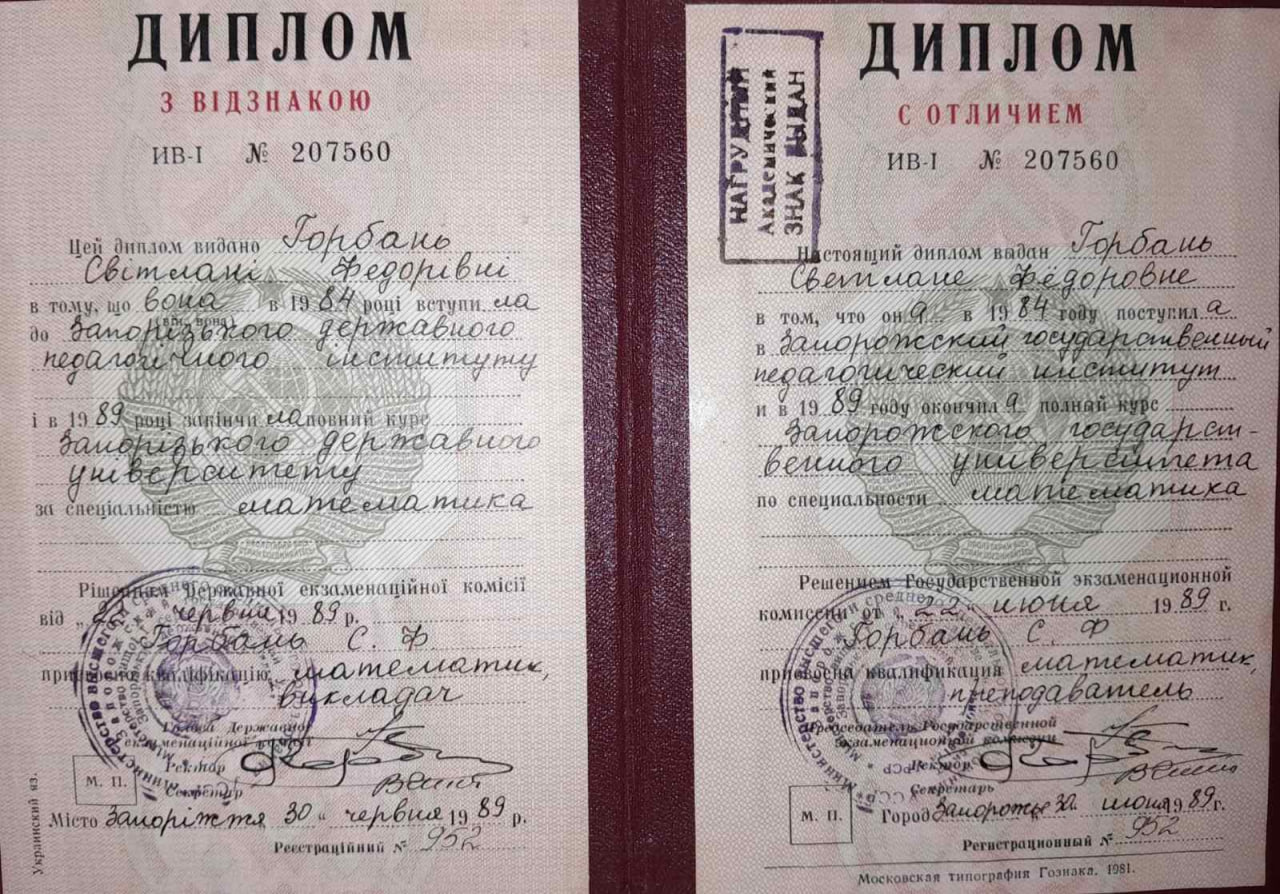 ДИПЛОМ
З ВІДЗНАКОЮ
ИВ-I № 207560
Цей диплом видано Горбань
Світлані Федорівні
в тому, що вона в 1984 році вступила
до Запорізького державного
педагогічного інституту
і в 1989 році закінчила повний курс
Запорізького державного
університету
за спеціальністю математика
Рішенням Державної екзаменаційної комісії
від „22" червня 1989 р.
Горбань С. Ф
присвоєно кваліфікацію математик,
викладач
Голова Державної
екзаменаційної комісії
Ректор
Секретар
М. П.
Місто Запоріжжя 30 " червня 1989 р.
Реєстраційний № 952
Украинский яз.
ДИПЛОМ
С ОТЛИЧИЕМ
ИВ-I № 207560
НАГРУДНЫЙ
Академический
ЗНАК ВЫДАН
Настоящий диплом выдан Горбань
Светлане Фёдоровне
в том, что она в 1984 году поступила
в Запорожский государственный
педагогический институт
и в 1989 году окончила полный курс
Запорожского государст-
венного университета
по специальности математика
Решением Государственной экзаменационной
комиссии от „22" июня 1989 г.
Горбань С. Ф
присвоена квалификация математик,
преподаватель
Председатель Государственной
экзаменационной комиссии
Ректор
Секретарь
М. П.
Город Запорожье 30 июня 1989 г.
Регистрационный № 952
Московская типография Гознака. 1981.